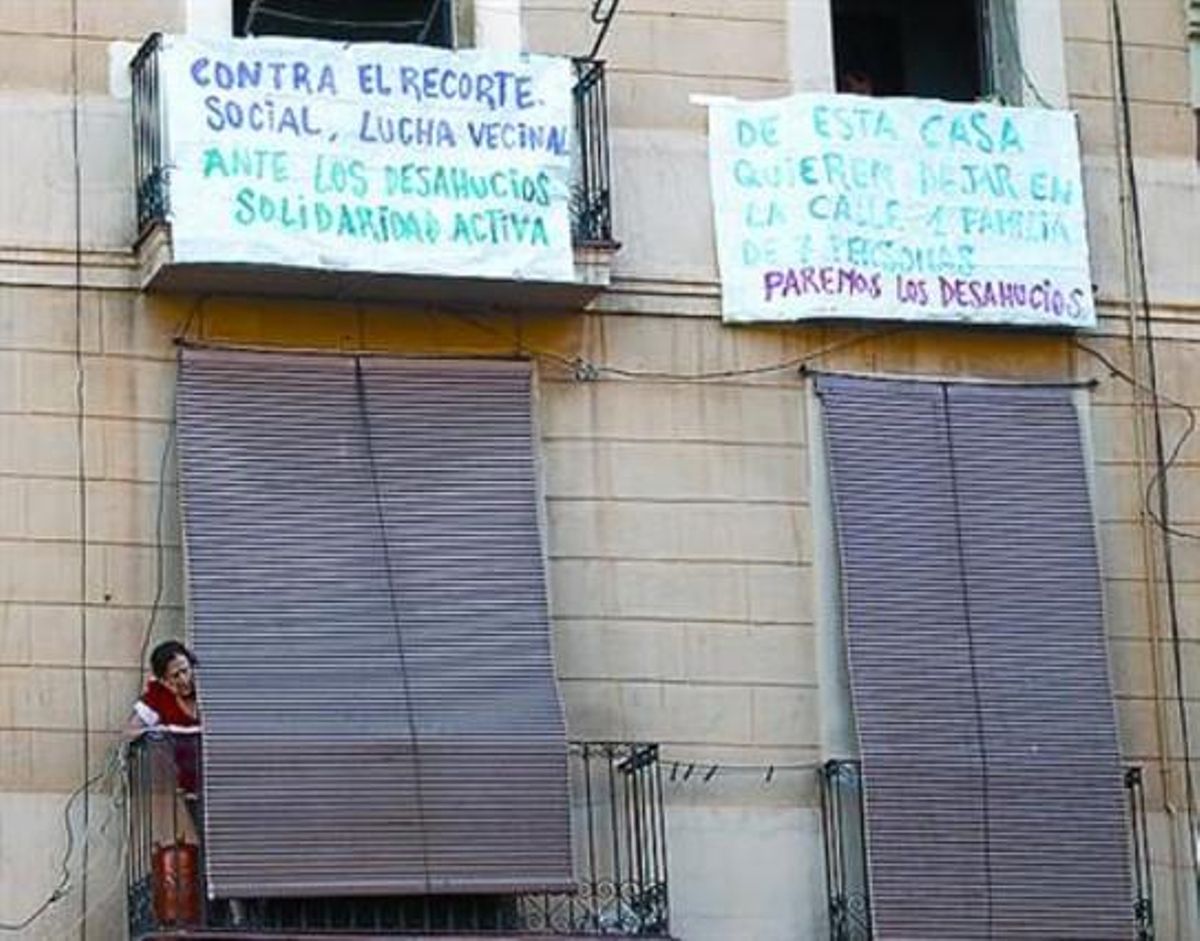 CONTRA EL RECORTE.
SOCIAL, LUCHA VECINAL
ANTE LOS DESAHUCIOS
SOLIDARIDAD ACTIVA
DE ESTA CASA
QUIEREN DEJAR EN
LA CALLE 1 FAMILIA
DE PERSONAS
PAREMOS LOS DESAHUCIOS